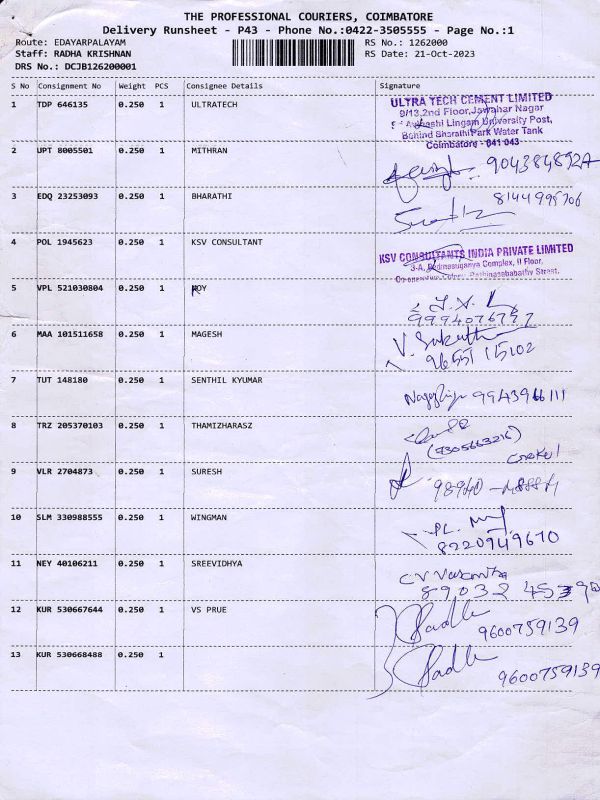 THE PROFESSIONAL COURIERS, COIMBATORE
Delivery Runsheet - P43 - Phone No.:0422-3505555 - Page No.:1
Route: EDAYARPALAYAM RS No.: 1262000
Staff: RADHA KRISHNAN RS Date: 21-Oct-2023
DRS No.: DCJB126200001
S No Consignment No Weight PCS Consignee Details Signature
1 TDP 646135 0.250 1 ULTRATECH
ULTRA TECH CEMENT LIMITED
9/13,2nd Floor,Jawahar Nagar
Lingam University Post,
Behind Sharathi Park Water Tank
Coimbatore - 641 043
2 UPT 8005501 0.250 1 MITHRAN
3 EDQ 23253093 0.250 1 BHARATHI
4 POL 1945623 0.250 1 KSV CONSULTANT
KSV CONSULTANTS INDIA PRIVATE LIMITED
Complex, II Floor,
Street.
5 VPL 521030804 0.250 1 ROY
9994076777
6 MAA 101511658 0.250 1 MAGESH
96551 15102
7 TUT 148180 0.250 1 SENTHIL KYUMAR
9943966111
8 TRZ 205370103 0.250 1 THAMIZHARASZ
(9305663216)
9 VLR 2704873 0.250 1 SURESH
10 SLM 330988555 0.250 1 WINGMAN
8220949670
11 NEY 40106211 0.250 1 SREEVIDHYA
12 KUR 530667644 0.250 1 VS PRUE
9600759139
13 KUR 530668488 0.250 1
9600759139